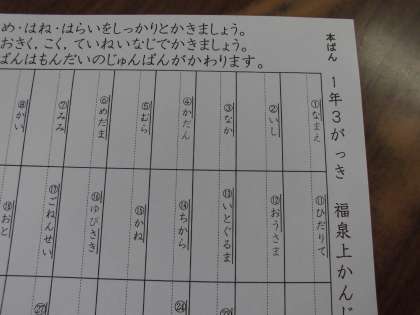 本ばん
1年3がっき 福泉上かんじ
め・はね・はらいをしっかりとかきましょう。
おきく、こく、ていねいなじでかきましょう。
ばんはもんだいのじゅんばんがかわります。
①なまえ
②いし
③なか
④かだん
⑤むら
⑥めだま
⑦みみ
⑧かい
⑪ひだりて
⑫おうさま
⑬いとぐるま
⑭ちから
⑮かね
⑯ゆびさき
⑰ごねんせい
⑱おと
㉔
㉗